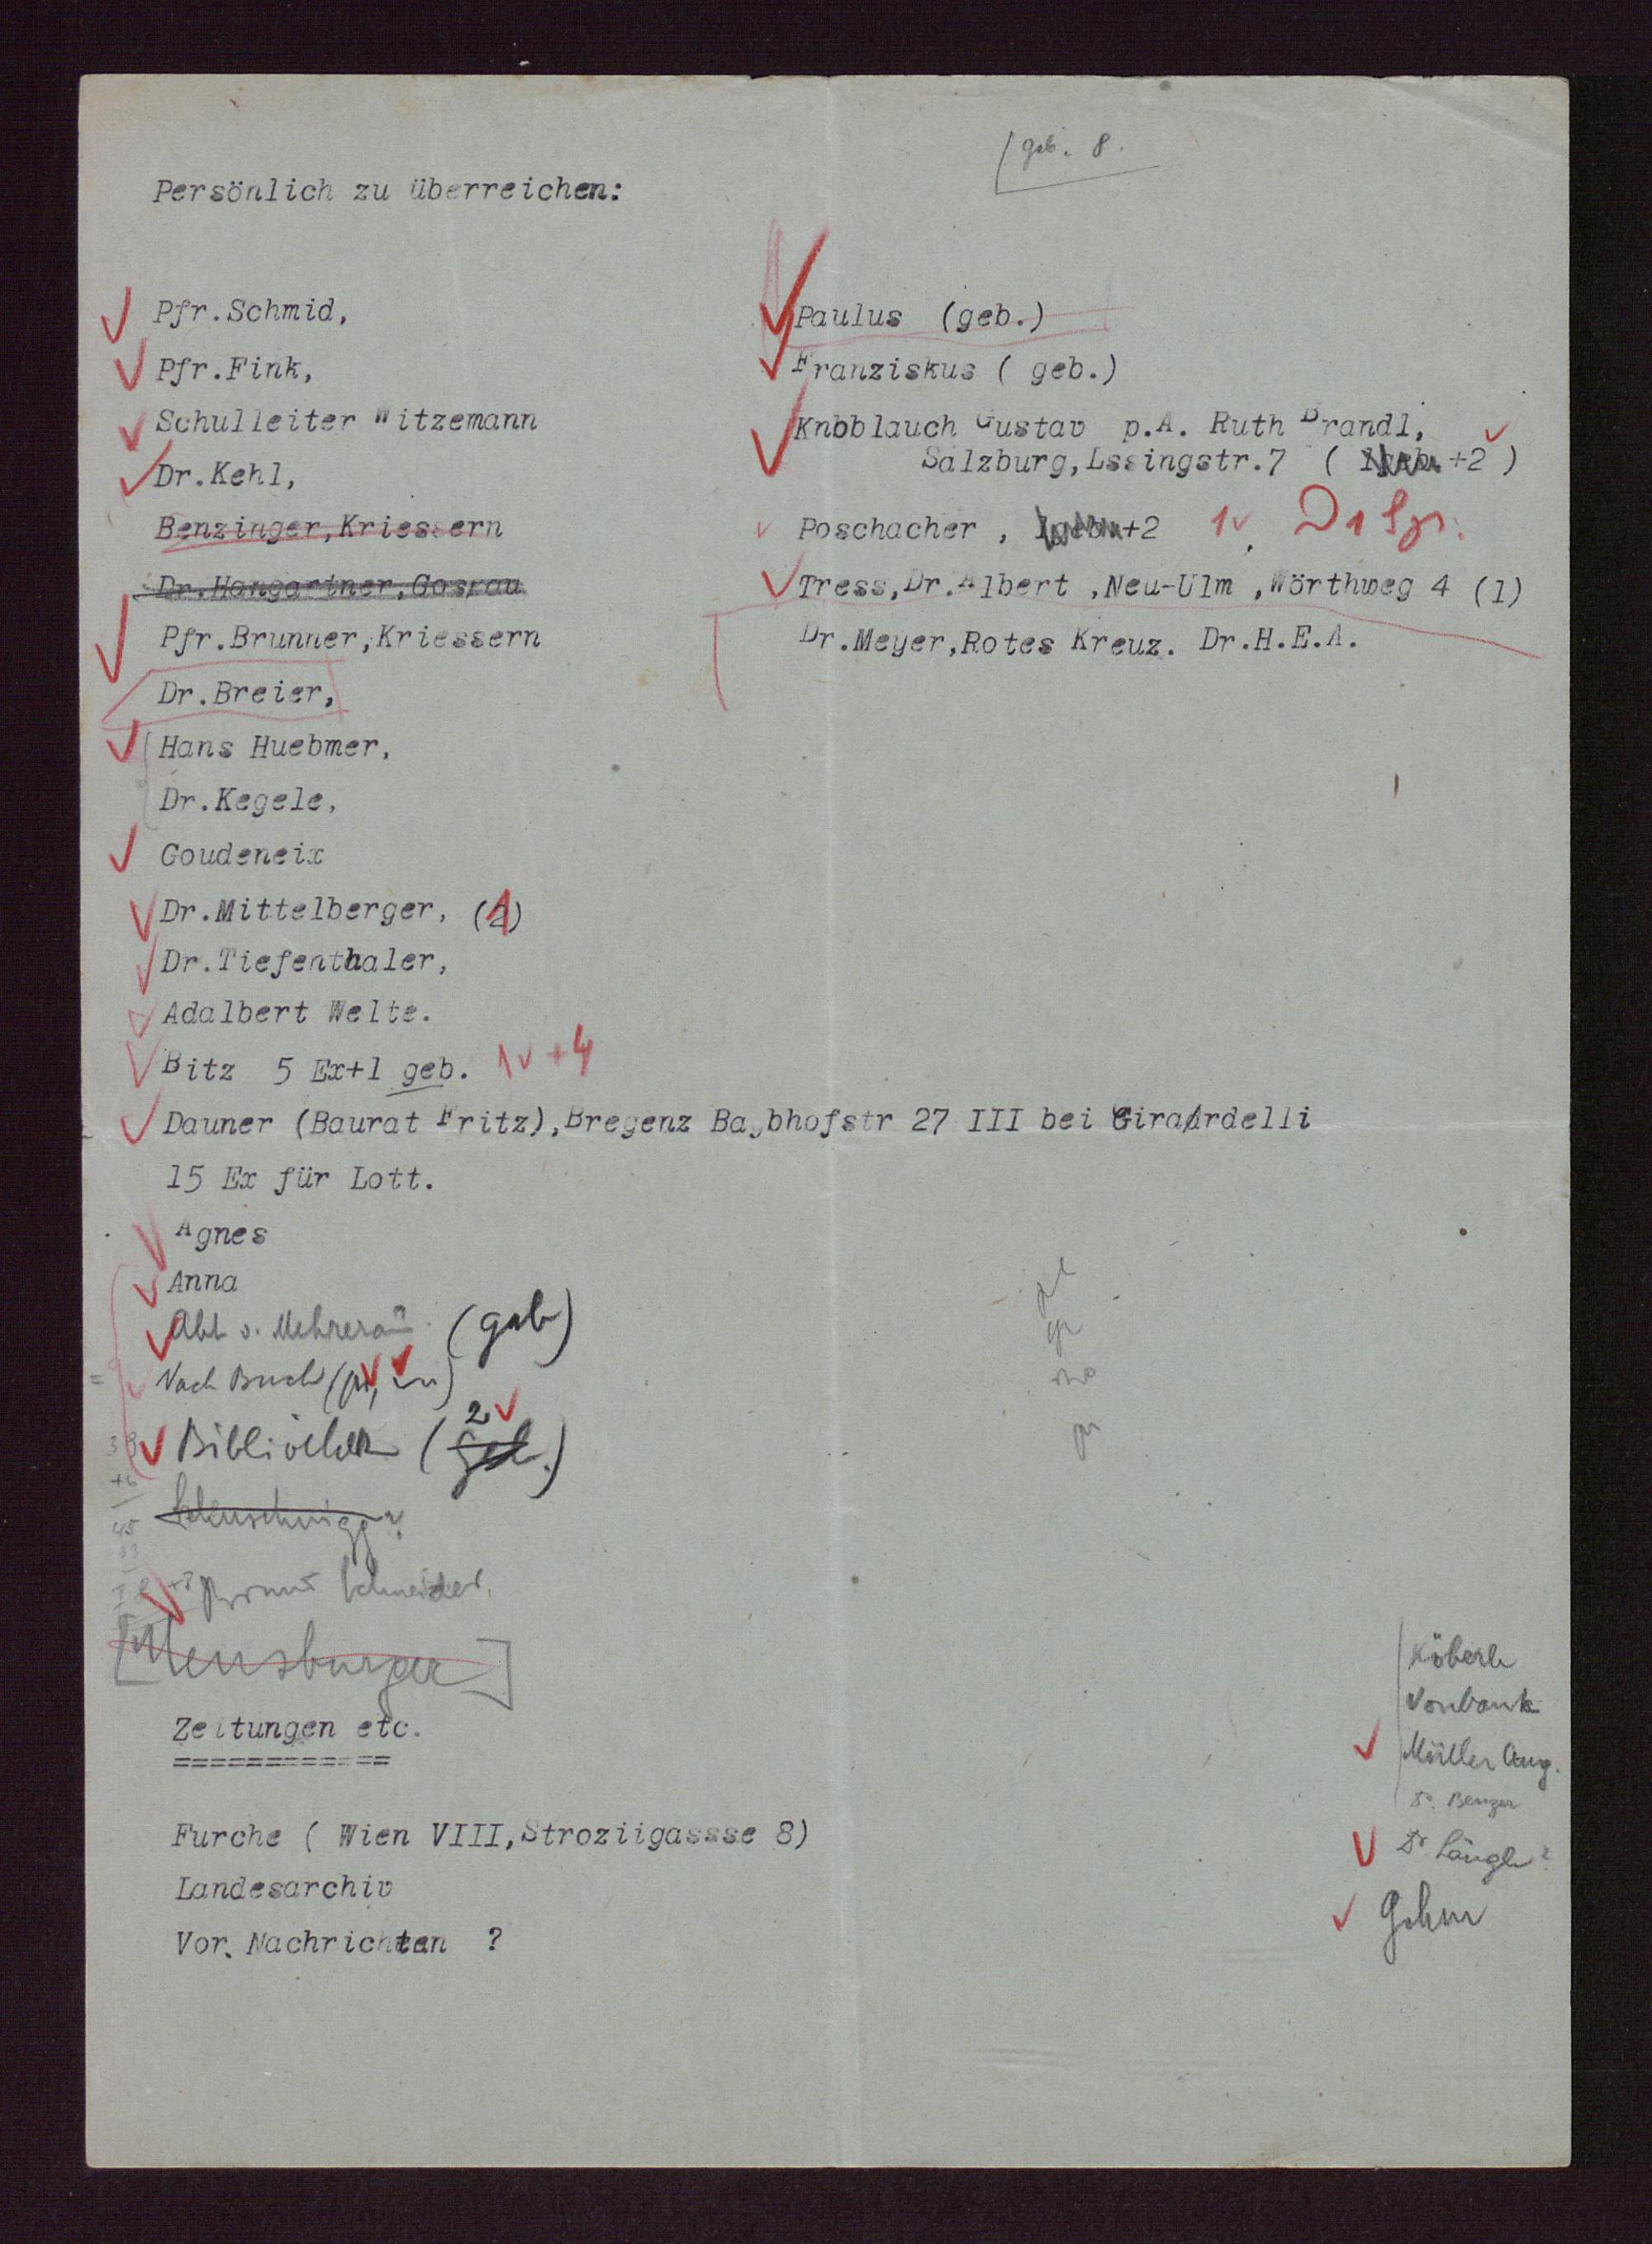 geb. 8.
Persönlich zu überreichen:
Pfr.Schmid,
Pfr.Fink,
Schulleiter Witzemann
Dr.Kehl,
Benzinger,Kriessern
Dr.Hangartner,Gossau
Pfr.Brunner,Kriessern
Dr.Breier,
Hans Huebmer,
Dr.Kegele,
Goudeneix
Dr.Mittelberger, (1)
Dr.Tiefenthaler,
Adalbert Welte.
Bitz 5 Ex+1 geb. 1 +4
Dauner (Baurat Fritz),Bregenz Bahbhofstr 27 III bei Girardelli
15 Ex für Lott.
Agnes
Anna
Abt v. Mehrerau (geb)
Nach Buch
Bibliothek (2 geb.)
Schuschnigg?
Schneider
[Mensburger]
Zeitungen etc.
============
Furche ( Wien VIII,Stroziigassse 8)
Landesarchiv
Vor. Nachrichten ?
Paulus (geb.)
Franziskus ( geb.)
Knbblauch Gustav p.A. Ruth Brandl,
Salzburg,Lssingstr.7 ( +2 )
Poschacher , +2 1
Tress,Dr.Albert ,Neu-Ulm ,Wörthweg 4 (1)
Dr.Meyer,Rotes Kreuz. Dr.H.E.A.
Köberle
Vonbank
Müller Aug.
Dr. Benzer
Dr Längle?
Gohm